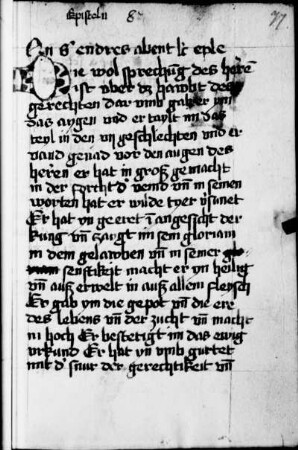 Episteln 8
77
An S endres abent
Die wol sprechung des heren
ist uber dz haubt des
gerechten dar umb gab er ym
das aygen und er taylt im das
teyl in den vii geschlechten und er
vand genad vor den augen des
herren er hat in groß gemacht
in der forcht d' veind vñ in seinen
worten hat er wilde tyer gsunet
Er hat yn geeret i angesicht der
kung vñ zaigt im sein gloriam
in dem gelawben vñ in seiner
senftikeit macht er yn heilig
vñ auß erwelt in auß allem fleysch
Er gab ym die gepot vñ die ere
des lebens vñ der zucht vñ macht
in hoch Er bestetigt im das ewig
urkund Er hat yn umb gurtet
mit d' snur der gerechtikeit vñ